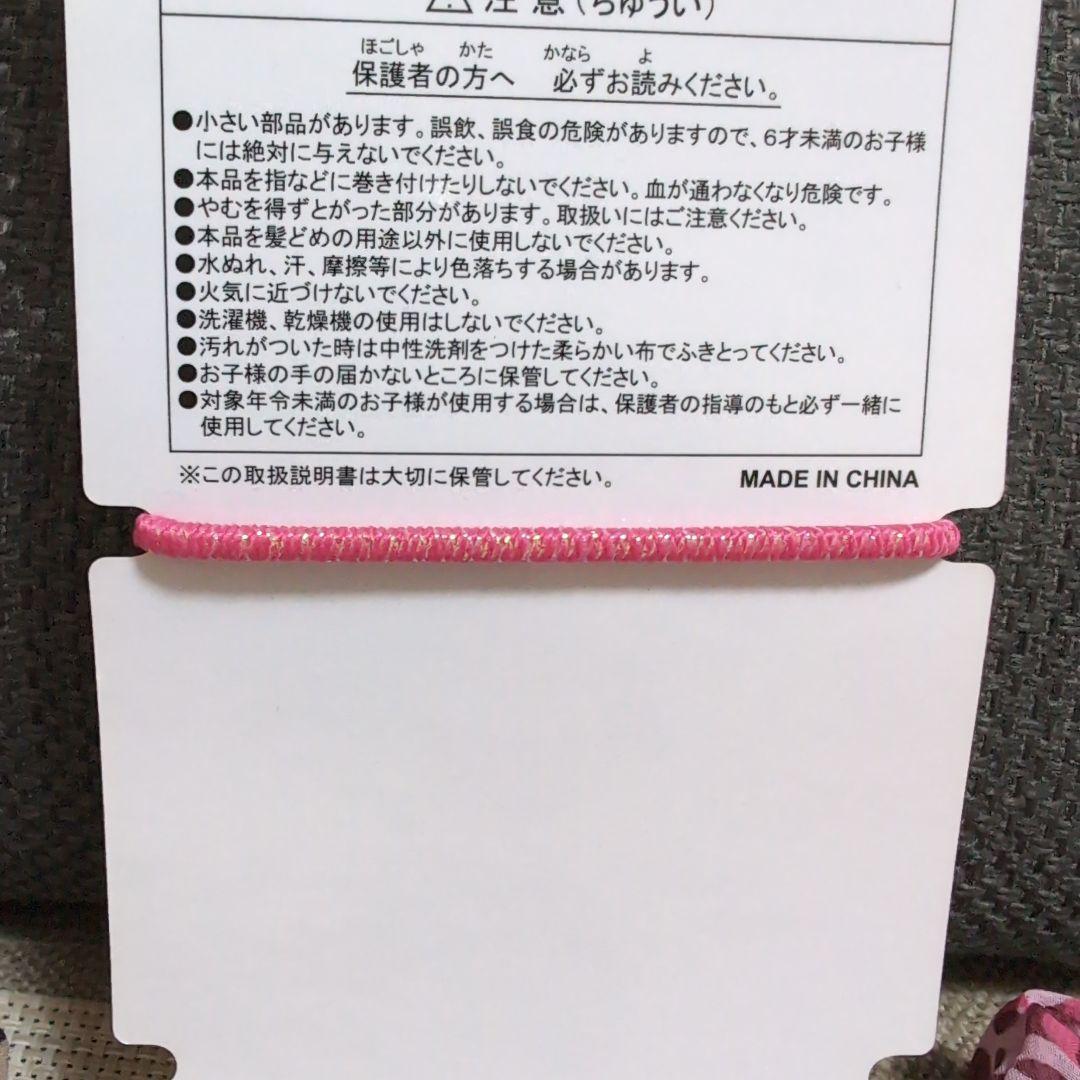 ⚠ 注意(ちゅうい)
ほごしゃ かた かなら よ
保護者の方へ 必ずお読みください。
●小さい部品があります。誤飲、誤食の危険がありますので、6才未満のお子様
には絶対に与えないでください。
●本品を指などに巻き付けたりしないでください。血が通わなくなり危険です。
●やむを得ずとがった部分があります。取扱いにはご注意ください。
●本品を髪どめの用途以外に使用しないでください。
●水ぬれ、汗、摩擦等により色落ちする場合があります。
●火気に近づけないでください。
●洗濯機、乾燥機の使用はしないでください。
●汚れがついた時は中性洗剤をつけた柔らかい布でふきとってください。
●お子様の手の届かないところに保管してください。
●対象年令未満のお子様が使用する場合は、保護者の指導のもと必ず一緒に
使用してください。
※この取扱説明書は大切に保管してください。 MADE IN CHINA